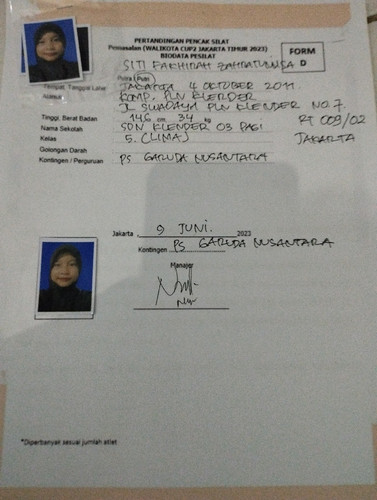 PERTANDINGAN PENCAK SILAT
Pemasalan (WALIKOTA CUP2 JAKARTA TIMUR 2023)
BIODATA PESILAT
FORM
D
SITI FAKHIRAH ZAHRATUNNISA
Putra / Putri
Tempat, Tanggal Lahir JAKARTA 4 OKTOBER 2011
Alamat KOMP. PLN KLENDER
JL SWADAYA PLN KLENDER NO.7.
RT 009/02
Tinggi, Berat Badan 146 cm 34 kg
JAKARTA
Nama Sekolah SDN KLENDER 03 PAGI
Kelas 5 (LIMA)
Golongan Darah
Kontingen / Perguruan PS GARUDA NUSANTARA
Jakarta 9 JUNI. 2023
Kontingen PS GARUDA NUSANTARA
Manajer
*Diperbanyak sesuai jumlah atlet